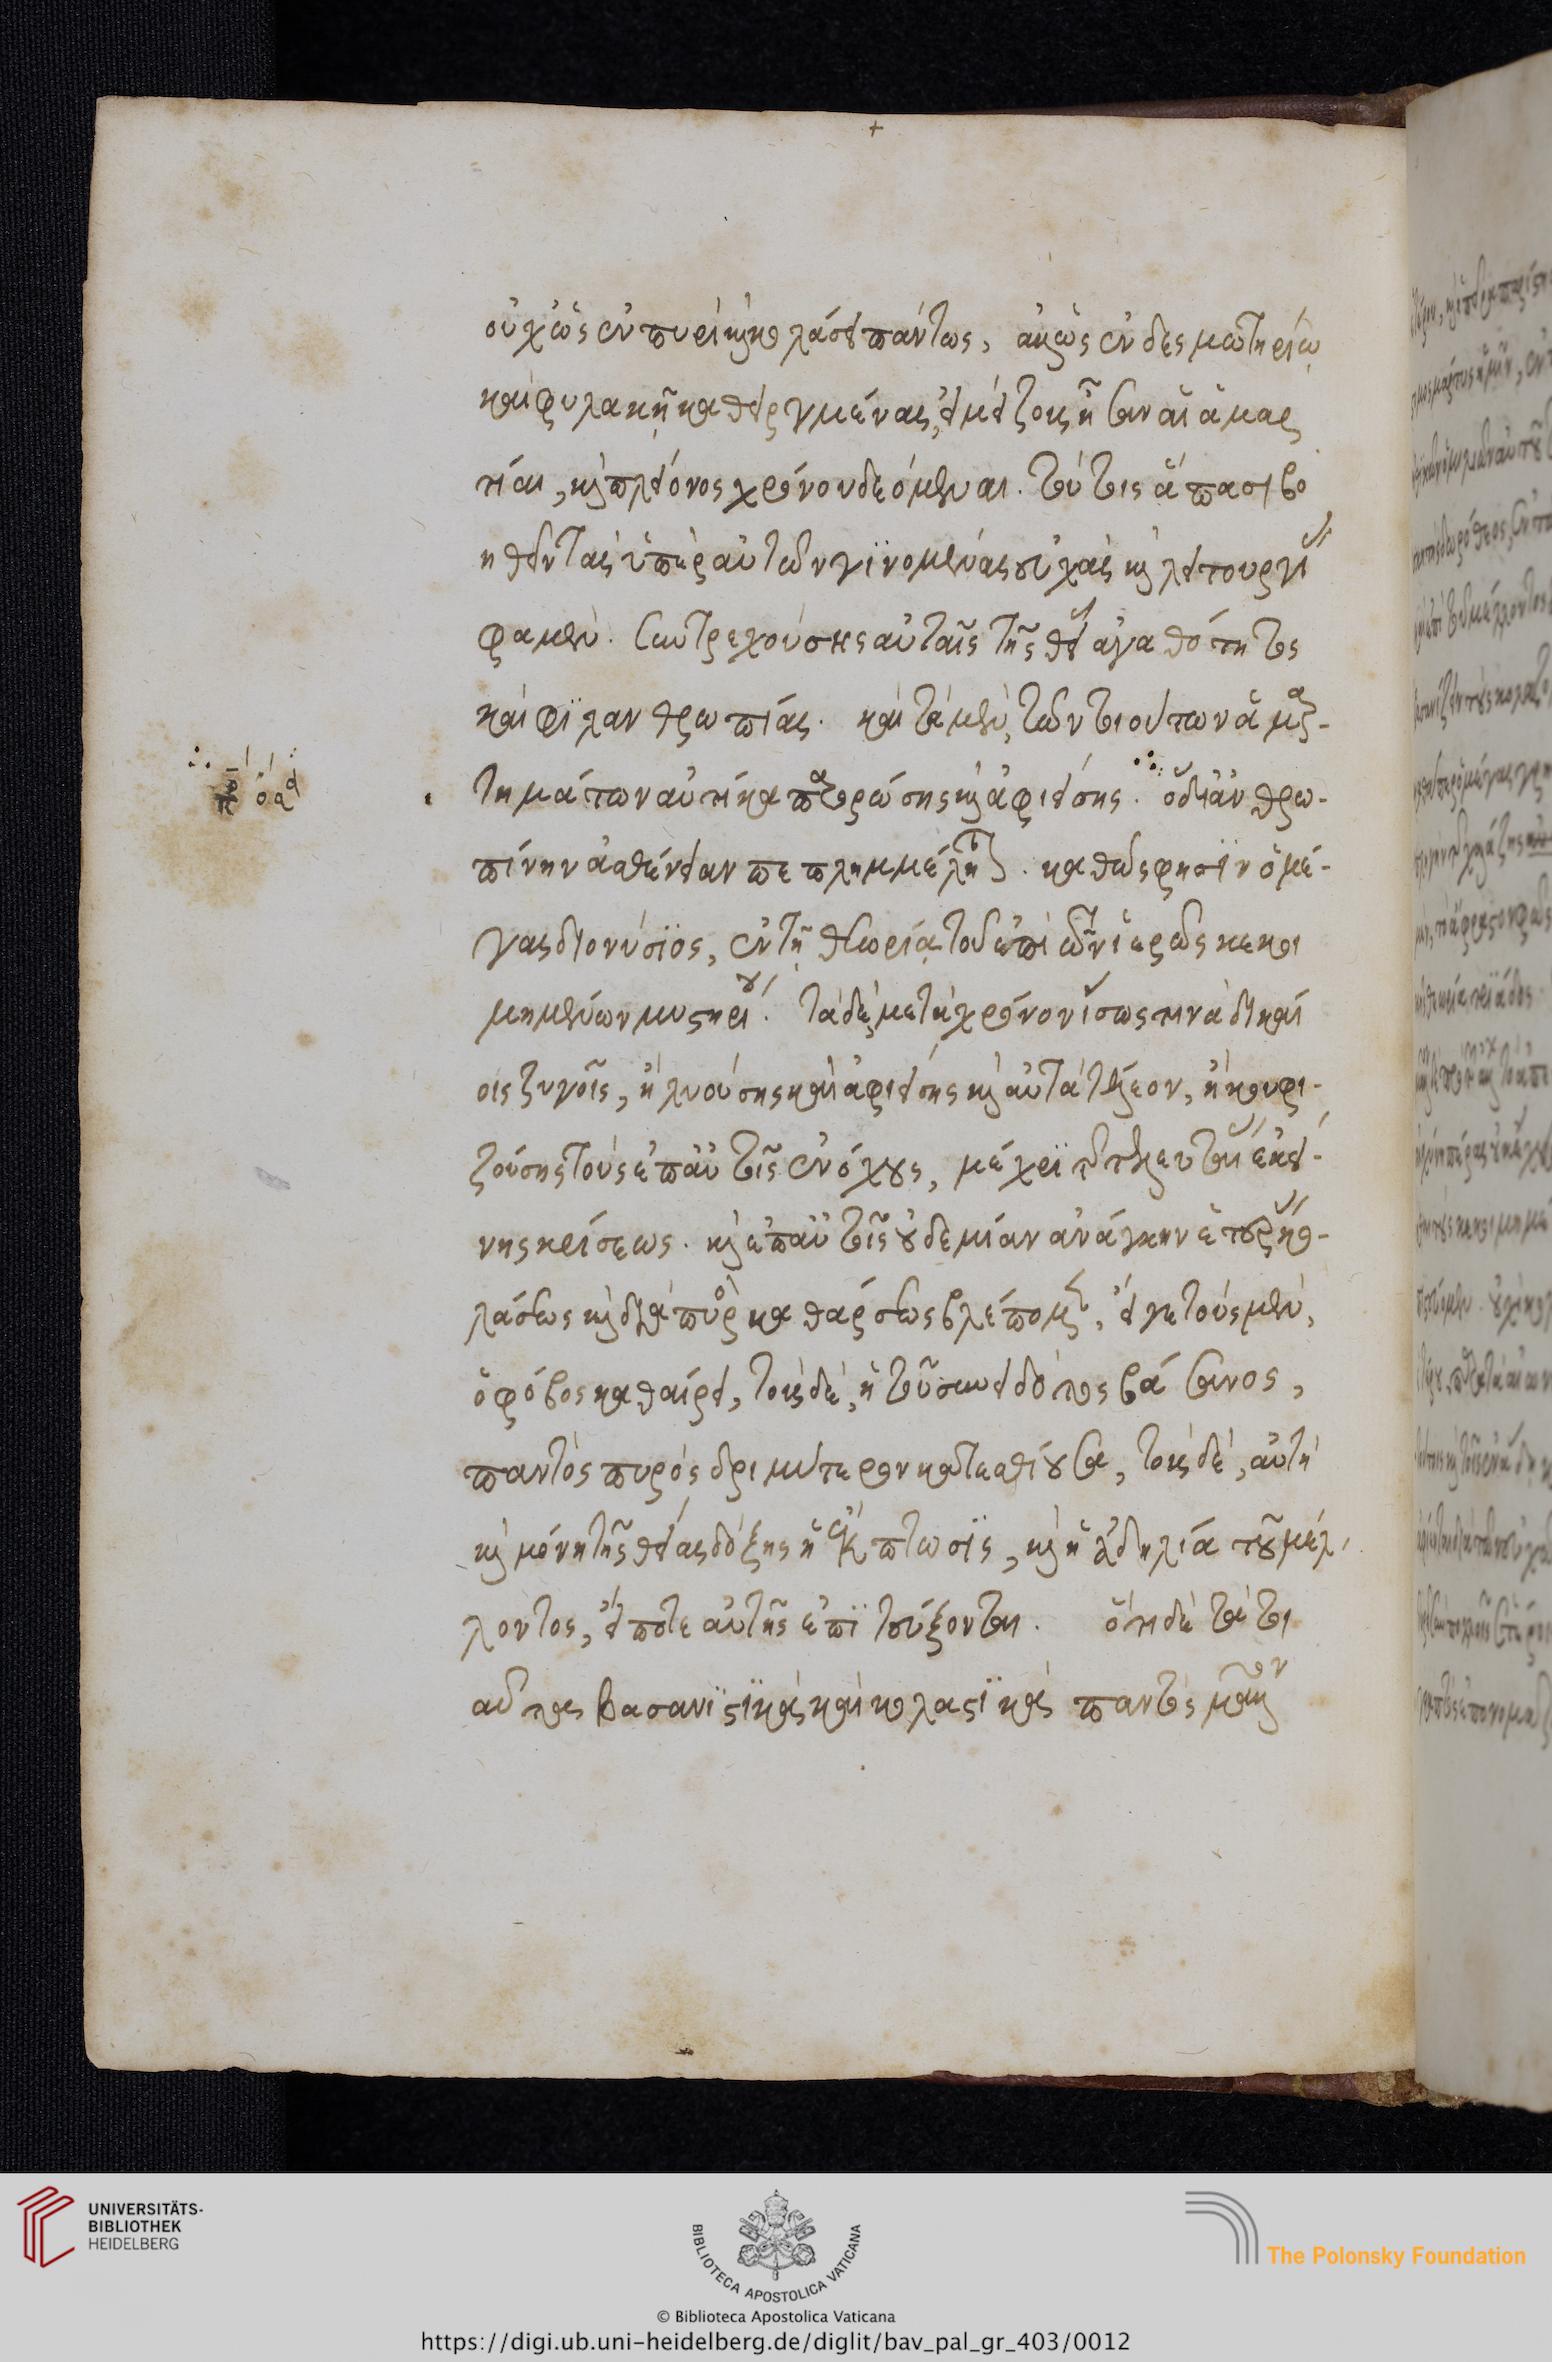 +
οὐχ ὡς ἐν πυρὶ καὶ κολάσει πάντως, ἀλλ' ὡς ἐν δεσμωτηρίῳ
καὶ φυλακῇ καθειργμένας, εἰ μείζοις ἦσαν αἱ ἁμαρ
τίαι, καὶ πλείονος χρόνου δεόμεναι. τούτοις ἅπασι βο
ηθεῖν τὰς ὑπὲρ αὐτῶν γϊνομένας εὐχὰς καὶ λειτουργίας
φαμέν. συντρεχούσης αὐταῖς τῆς θείας ἀγαθότητος
καὶ φϊλανθρωπίας. καὶ τὰ μὲν, τῶν τοιούτων ἁμαρ-
τημάτων αὐτίκα παρορώσης καὶ ἀφιείσης. ὅσα δι' ἀνθρω-
πίνην ἀσθένειαν πεπλημμέληται. καθώς φησϊν ὁ μέ-
γας διονύσϊος, ἐν τῇ θεωρίᾳ τοῦ ἐπὶ τῶν ἱερῶς κεκοι
μημένων μυστηρίου. τὰ δὲ μετὰ χρόνον ἴσως τινὰ δικαί
οις ζυγοῖς, ἢ λυούσης καὶ ἀφιείσης καὶ αὐτὰ τέλεον, ἢ κουφι-
ζούσης τοὺς ἐπ' αὐτοῖς ἐνόχους, μέχρϊ τῆς τελευταίας ἐκεί-
νης κρίσεως. καὶ ἐπ' αὐτοῖς οὐδεμίαν ἀνάγκην ἑτέρας κο-
λάσεως καὶ διὰ πυρὸς καθάρσεως βλέπομεν, εἴγε τοὺς μὲν,
ὁ φόβος καθαίρει, τοὺς δὲ, ἡ τοῦ συνειδότος βάσανος,
παντὸς πυρὸς δριμύτερον κατεσθίουσα, τοὺς δὲ, αὐτὴ
καὶ μόνη τῆς θείας δόξης ἡ ἔκπτωσϊς, καὶ ἡ ἀδηλία τοῦ μέλ-
λοντος, εἴποτε αὐτῆς ἐπϊτεύξονται. ὅτι δὲ ταῦτα
βασανϊστϊκὰ καὶ κολαστϊκὰ παντὸς μᾶλλον
UNIVERSITÄTS-
BIBLIOTHEK
HEIDELBERG
BIBLIOTECA APOSTOLICA VATICANA
The Polonsky Foundation
© Biblioteca Apostolica Vaticana
https://digi.ub.uni-heidelberg.de/diglit/bav_pal_gr_403/0012